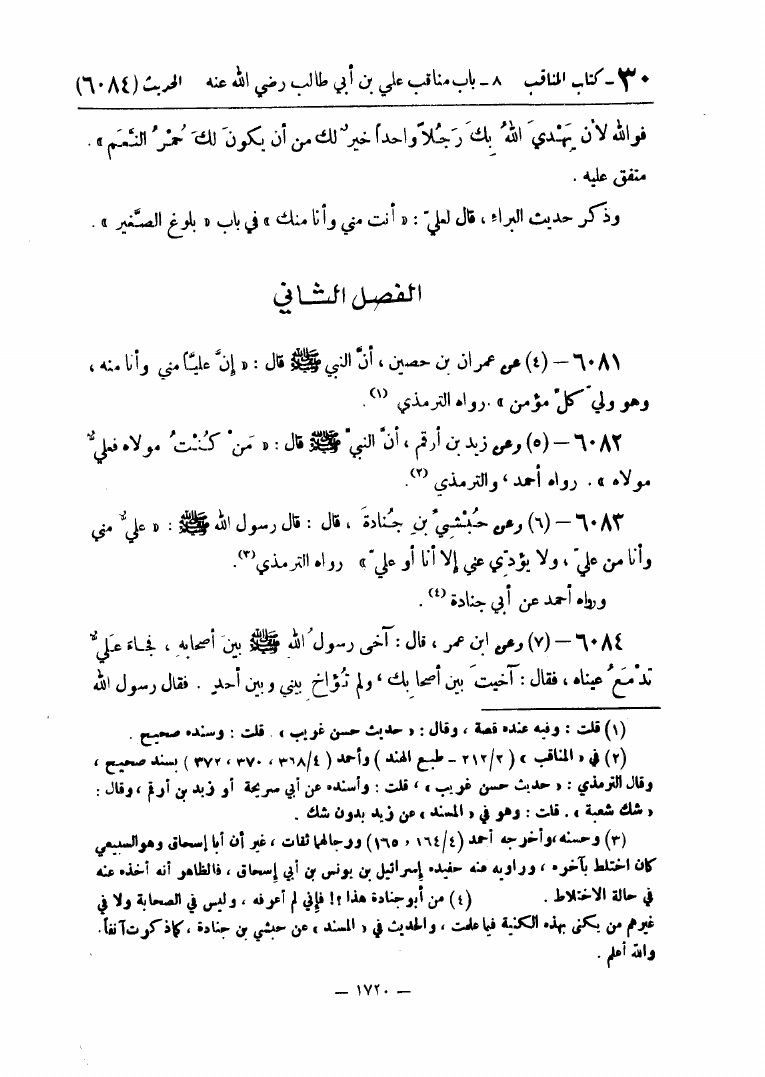 ٣٠ ـ كتاب المناقب ٨ ـ باب مناقب علي بن أبي طالب رضي الله عنه الحديث (٦٠٨٤)
فوالله لأن يَهْديَ اللهُ بِكَ رَجُلاً واحداً خيرٌ لك من أن يكونَ لكَ حُمْرُ النَّعَمِ » .
متفق عليه .
وذكر حديث البراء ، قال لعليّ : « أنت مني وأنا منك » في باب « بلوغ الصَّغير » .
الفصل الثاني
٦٠٨١ – (٤) عن عمران بن حصين ، أنَّ النبي ﷺ قال : « إنَّ عليَّاً مني وأنا منه ،
وهو وليّ كلِّ مؤمن » . رواه الترمذي (١).
٦٠٨٢ – (٥) وعن زيد بن أرقم ، أنَّ النبيَّ ﷺ قال : « مَنْ كُنْتُ مولاه فعليٌّ
مولاه » . رواه أحمد ، والترمذي (٢).
٦٠٨٣ – (٦) وعن حُبْشِيِّ بنِ جُنادةَ ، قال : قال رسول الله ﷺ : « عليٌّ مني
وأنا من عليّ ، ولا يؤدّي عني إلا أنا أو عليّ » رواه الترمذي (٣).
ورواه أحمد عن أبي جنادة (٤) .
٦٠٨٤ – (٧) وعن ابن عمر ، قال : آخى رسولُ الله ﷺ بينَ أصحابهِ ، فجاءَ عَليٌّ
تدْمَعُ عيناه ، فقال : آخيتَ بين أصحابك ، ولم تُؤاخِ بيني وبين أحدٍ . فقال رسول الله
(١) قلت : وفيه عنده قصة ، وقال : « حديث حسن غريب » . قلت : وسنده صحيح .
(٢) في « المناقب » ( ٢١٢/٢ – طبع الهند ) وأحمد ( ٣٦٨/٤ ، ٣٧٠ ، ٣٧٢ ) بسند صحيح ،
وقال الترمذي : « حديث حسن غريب » ، قلت : وأسنده عن أبي سريحة أو زيد بن أرقم ، وقال :
« شك شعبة » . قلت : وهو في « المسند » عن زيد بدون شك .
(٣) وحسنه ، وأخرجه أحمد (١٦٤/٤ ، ١٦٥) ورجالهما ثقات ، غير أن أبا إسحاق وهو السبيعي
كان اختلط بآخره ، وراويه عنه حفيده إسرائيل بن يونس بن أبي إسحاق ، فالظاهر أنه أخذه عنه
في حالة الاختلاط . (٤) من أبو جنادة هذا ؟! فإني لم أعرفه ، وليس في الصحابة ولا في
غيرهم من يكنى بهذه الكنية فيما علمت ، والحديث في « المسند » عن حبشي بن جنادة ، كما ذكرت آنفاً .
والله أعلم .
– ١٧٢٠ –